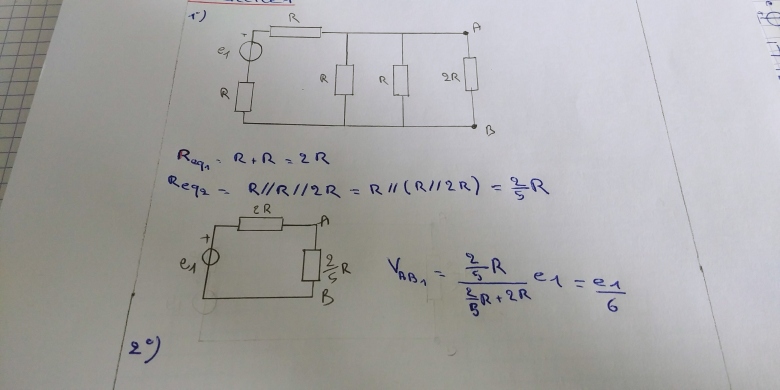 1°)
R
A
+
e1
R
R
R
2R
B
Req1 = R + R = 2R
Req2 = R//R//2R = R//(R//2R) = 2/5 R
2R
A
+
e1
2/5 R
B
VAB1 = (2/5 R)/(2/5 R + 2R) e1 = e1/6
2°)